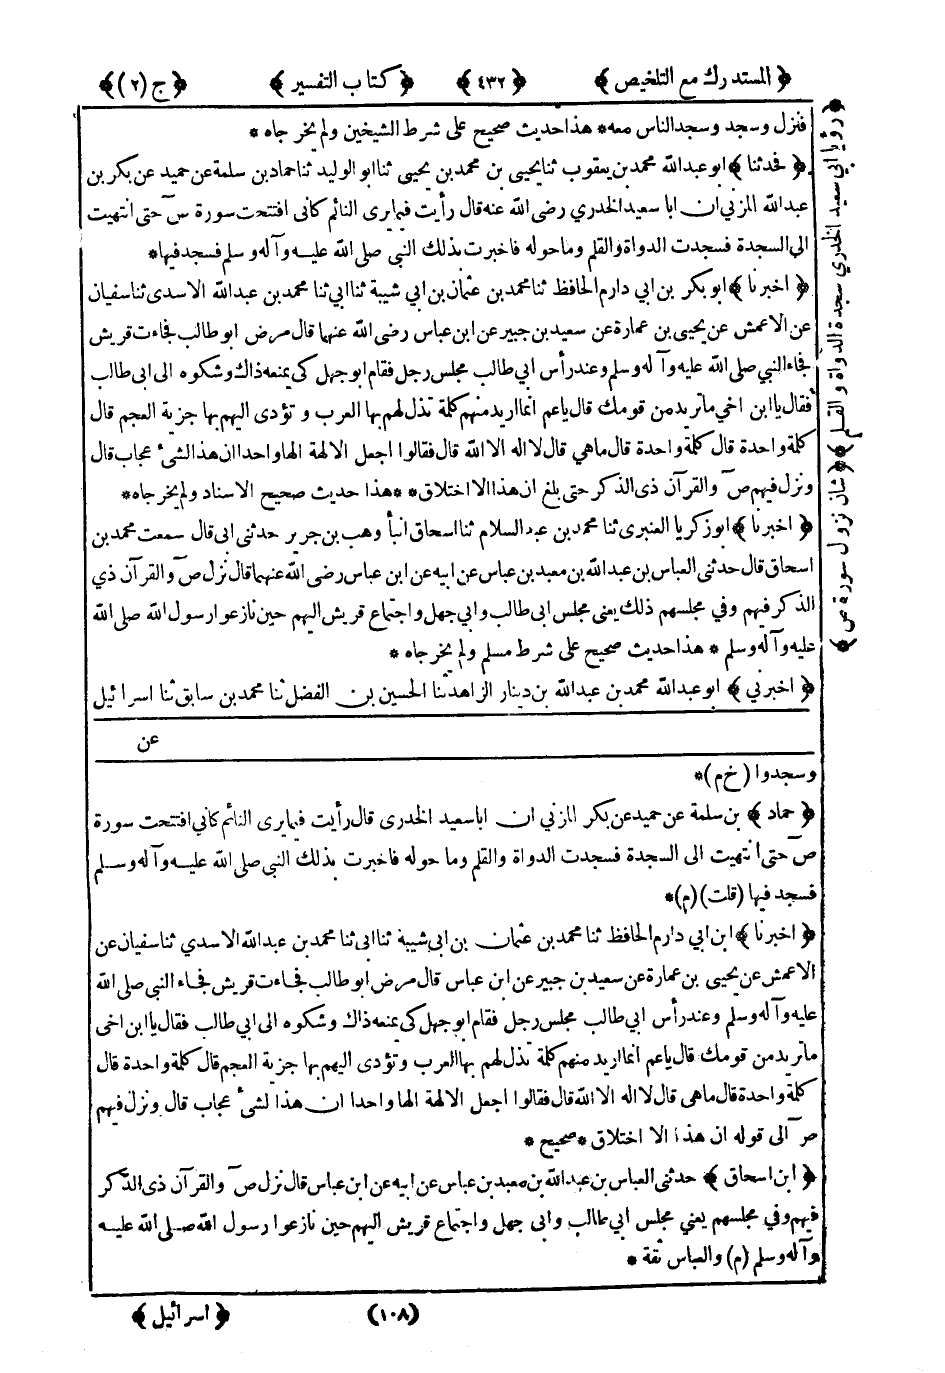 ﴿ المستدرك مع التلخيص ﴾ ﴿ ٤٣٢ ﴾ ﴿ كتاب التفسير ﴾ ﴿ ج (٢) ﴾
فنزل وسجد وسجد الناس معه * هذا حديث صحيح على شرط الشيخين ولم يخرجاه *
﴿ فحدثنا ﴾ ابو عبد الله محمد بن يعقوب ثنا يحيى بن محمد بن يحيى ثنا ابو الوليد ثنا حماد بن سلمة عن حميد عن بكر بن
عبد الله المزني ان ابا سعيد الخدري رضى الله عنه قال رأيت فيما يرى النائم كانى افتتحت سورة ص حتى انتهيت
الى السجدة فسجدت الدواة والقلم وما حوله فاخبرت بذلك النبي صلى الله عليه وآله وسلم فسجد فيها *
﴿ اخبرنا ﴾ ابو بكر بن ابي دارم الحافظ ثنا محمد بن عثمان بن ابي شيبة ثنا ابي ثنا محمد بن عبد الله الاسدى ثنا سفيان
عن الاعمش عن يحيى بن عمارة عن سعيد بن جبير عن ابن عباس رضى الله عنهما قال مرض ابو طالب فجاءت قريش
فجاء النبي صلى الله عليه وآله وسلم وعند رأس ابي طالب مجلس رجل فقام ابو جهل كى يمنعه ذاك وشكوه الى ابى طالب
فقال يا ابن اخي ما تريد من قومك قال يا عم انما اريد منهم كلمة تذل لهم بها العرب و تؤدى اليهم بها جزية العجم قال
كلمة واحدة قال كلمة واحدة قال ما هي قال لا اله الا الله قال فقالوا اجعل الالهة الها واحدا ان هذا لشئ عجاب قال
ونزل فيهم ص والقرآن ذى الذكر حتى بلغ ان هذا الا اختلاق * * هذا حديث صحيح الاسناد ولم يخرجاه *
﴿ اخبرنا ﴾ ابو زكريا العنبرى ثنا محمد بن عبد السلام ثنا اسحاق انبأ وهب بن جرير حدثنى ابى قال سمعت محمد بن
اسحاق قال حدثنى العباس بن عبد الله بن معبد بن عباس عن ابيه عن ابن عباس رضى الله عنهما قال نزل ص والقرآن ذي
الذكر فيهم وفي مجلسهم ذلك يعنى مجلس ابى طالب وابي جهل واجتماع قريش اليهم حين نازعوا رسول الله صلى الله
عليه وآله وسلم * هذا حديث صحيح على شرط مسلم ولم يخرجاه *
﴿ اخبرني ﴾ ابو عبد الله محمد بن عبد الله بن دينار الزاهد ثنا الحسين بن الفضل ثنا محمد بن سابق ثنا اسرائيل
عن
وسجدوا (خ م) *
﴿ حماد ﴾ بن سلمة عن حميد عن بكر المزني ان ابا سعيد الخدرى قال رأيت فيما يرى النائم كاني افتتحت سورة
ص حتى انتهيت الى السجدة فسجدت الدواة والقلم وما حوله فاخبرت بذلك النبي صلى الله عليه وآله وسلم
فسجد فيها (قلت) (م) *
﴿ اخبرنا ﴾ ابن ابي دارم الحافظ ثنا محمد بن عثمان بن ابى شيبة ثنا ابى ثنا محمد بن عبد الله الاسدي ثنا سفيان عن
الاعمش عن يحيى بن عمارة عن سعيد بن جبير عن ابن عباس قال مرض ابو طالب فجاءت قريش فجاء النبي صلى الله
عليه وآله وسلم وعند رأس ابي طالب مجلس رجل فقام ابو جهل كى يمنعه ذاك وشكوه الى ابي طالب فقال يا ابن اخى
ما تريد من قومك قال يا عم انما اريد منهم كلمة تذل لهم بها العرب وتؤدى اليهم بها جزية العجم قال كلمة واحدة قال
كلمة واحدة قال ما هى قال لا اله الا الله قال فقالوا اجعل الالهة الها واحدا ان هذا لشئ عجاب قال ونزل فيهم
ص الى قوله ان هذا الا اختلاق * صحيح *
﴿ ابن اسحاق ﴾ حدثنى العباس بن عبد الله بن معبد بن عباس عن ابيه عن ابن عباس قال نزل ص والقرآن ذى الذكر
فيهم وفي مجلسهم يعني مجلس ابي طالب وابى جهل واجتماع قريش اليهم حين نازعوا رسول الله صلى الله عليه
وآله وسلم (م) والعباس ثقة *
﴿ رؤيا ابي سعيد الخدري سجدة الدواة والقلم ﴾ ﴿ شان نزول سورة ص ﴾
(١٠٨) ﴿ اسرائيل ﴾